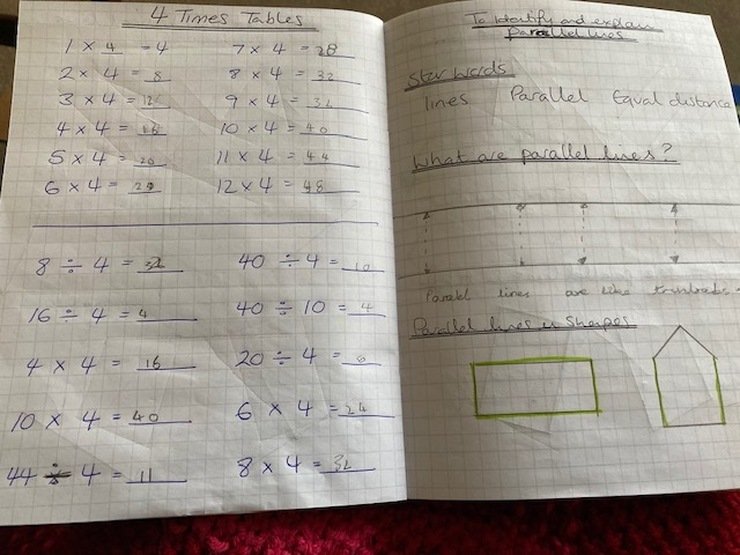 4 Times Tables
1 × 4 = 4
2 × 4 = 8
3 × 4 = 12
4 × 4 = 16
5 × 4 = 20
6 × 4 =
7 × 4 = 28
8 × 4 = 32
9 × 4 =
10 × 4 = 40
11 × 4 = 44
12 × 4 = 48
8 ÷ 4 =
16 ÷ 4 = 4
4 × 4 = 16
10 × 4 = 40
44 ÷ 4 = 11
40 ÷ 4 = 10
40 ÷ 10 = 4
20 ÷ 4 =
6 × 4 = 24
8 × 4 = 32
To identify and explain
Parallel lines
Star words
lines Parallel Equal distance
What are parallel lines?
lines are like
Parallel lines in Shapes